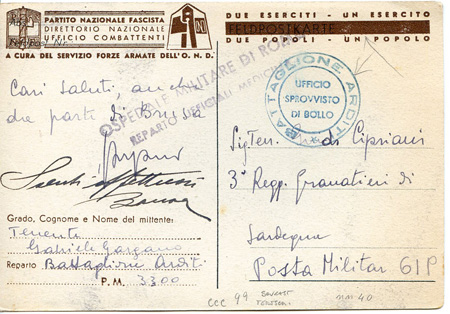 PARTITO NAZIONALE FASCISTA
DIRETTORIO NAZIONALE
UFFICIO COMBATTENTI
A CURA DEL SERVIZIO FORZE ARMATE DELL'O. N. D.
DUE ESERCITI - UN ESERCITO
FELDPOSTKARTE
DUE POPOLI - UN POPOLO
OSPEDALE MILITARE DI ROMA
REPARTO UFFICIALI MEDICINA
BATTAGLIONE ARDITI
UFFICIO
SPROVVISTO
DI BOLLO
Cari saluti, anche
da parte di
Saluti
Grado, Cognome e Nome del mittente:
Tenente
Gabriele Gargano
Reparto Battaglione Arditi
P. M. 3300
Sig Ten. di Cipriani
3° Regg. Granatieri di
Sardegna
Posta Militar 61P
CCC 99
40